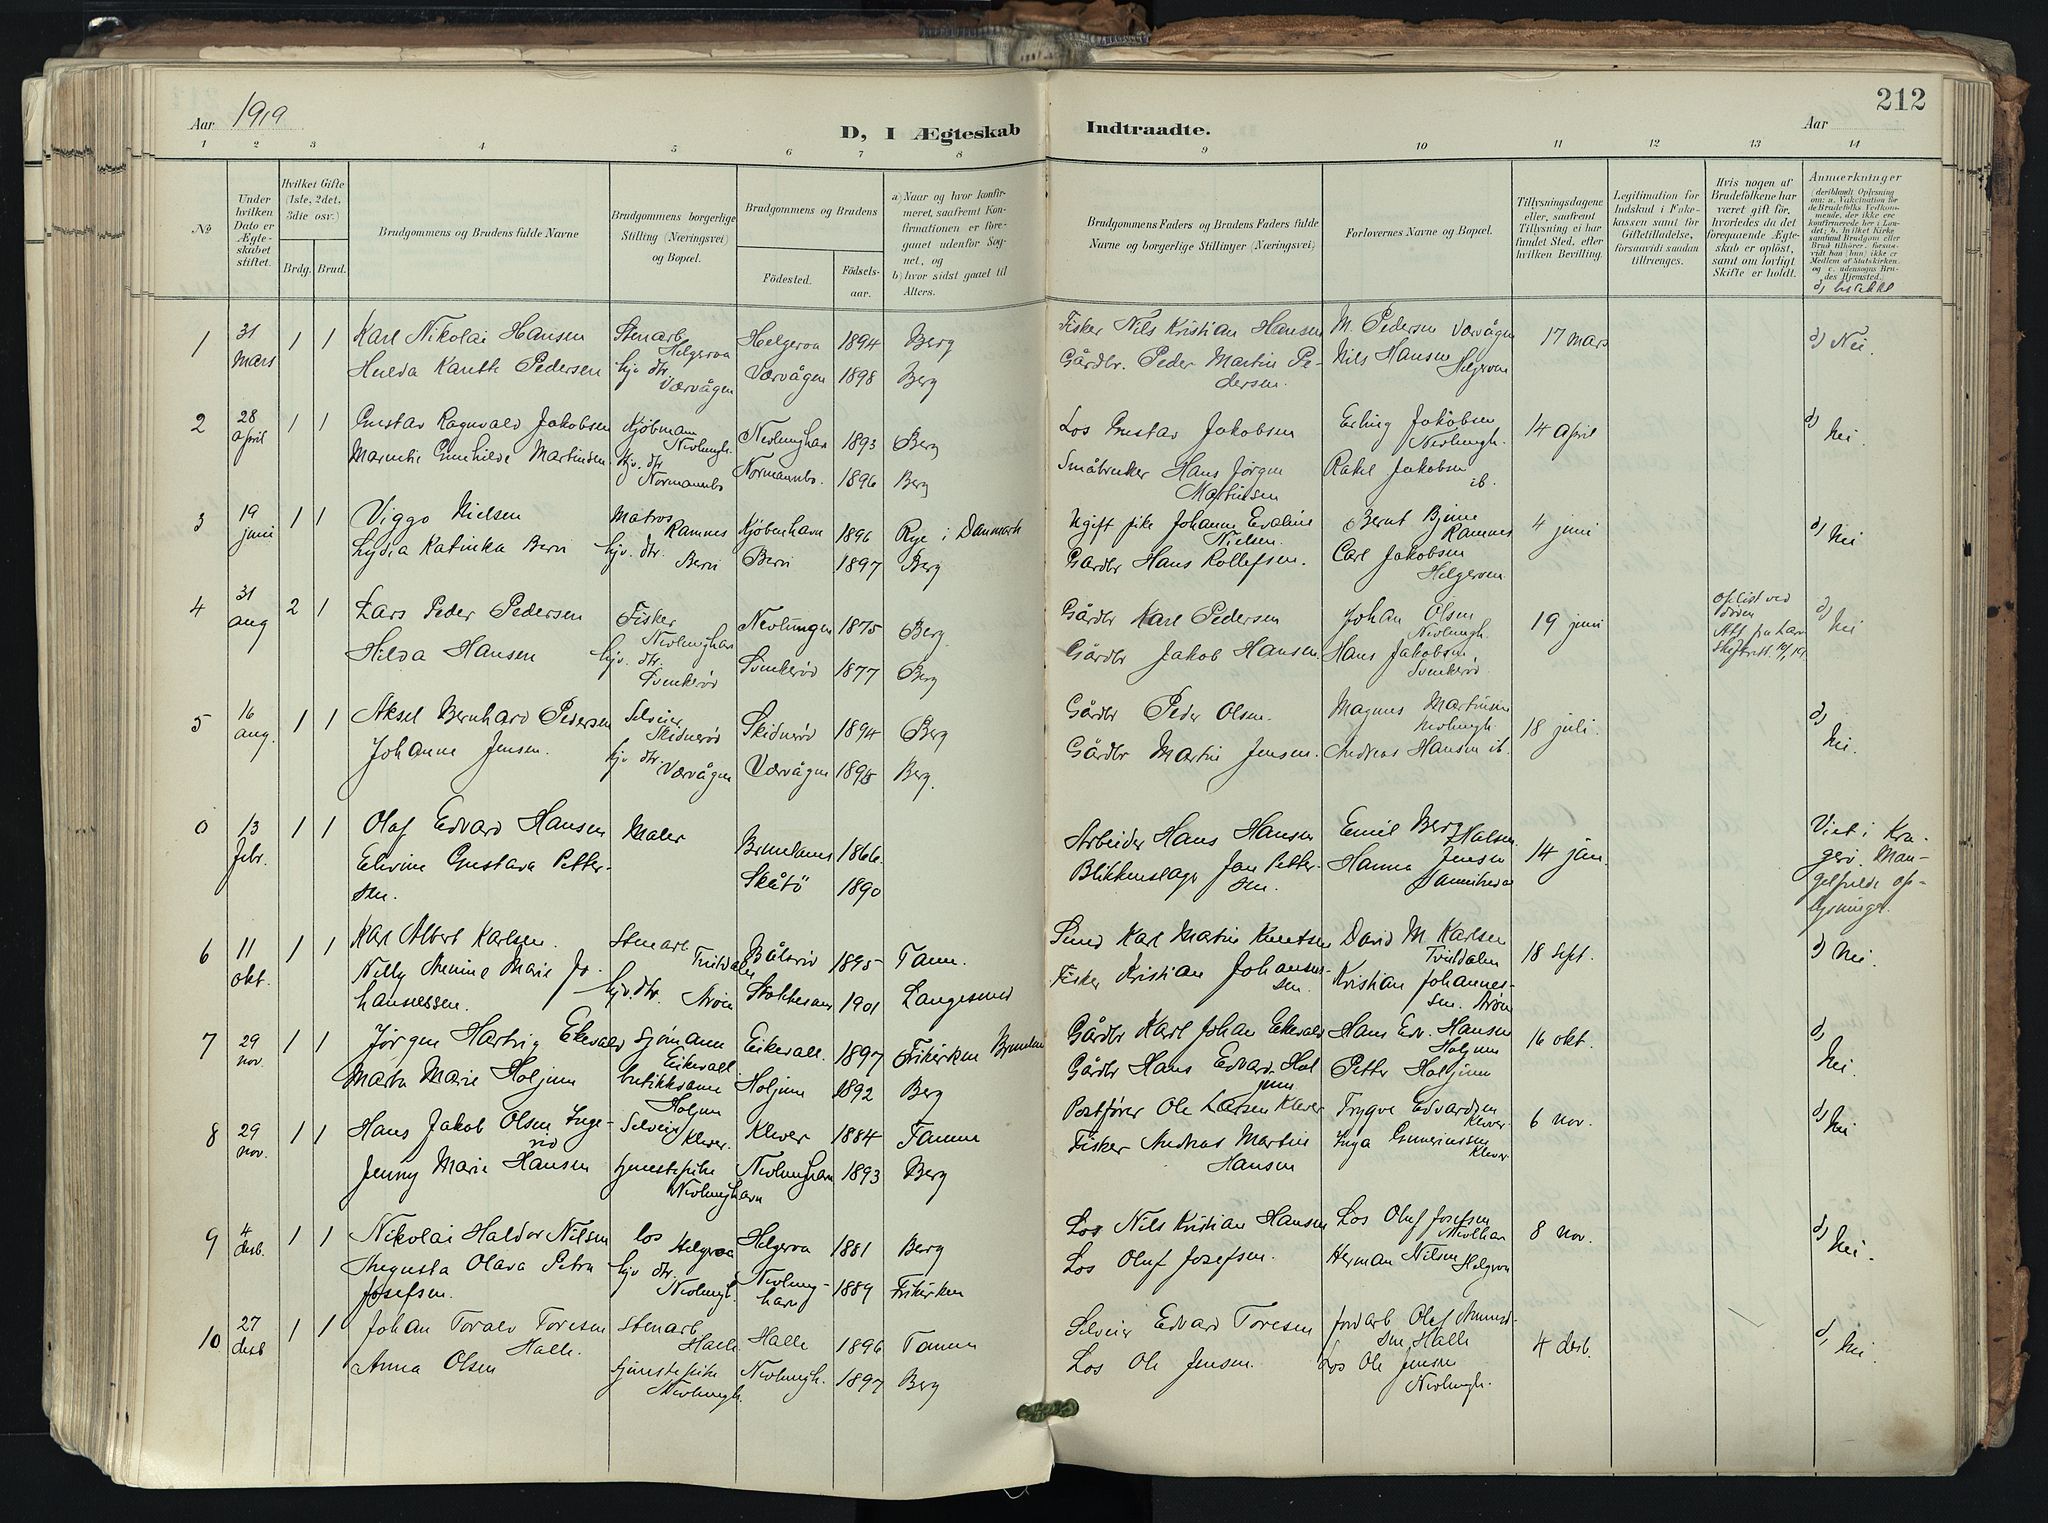 Aar 1919
D, I Ægteskab
Indtraadte.
Aar
212
1 2 3 4 5 6 7 8 9 10 11 12 13 14
No
Under hvilken Dato er Ægteskabet stiftet.
Hvilket Gifte (1ste, 2det. 3die osv.)
Brdg. Brud.
Brudgommens og Brudens fulde Navne
Brudgommens borgerlige Stilling (Næringsvei) og Bopæl.
Brudgommens og Brudens
Födested.
Födselsaar.
a) Naar og hvor konfirmeret, saafremt Konfirmationen er foregaaet udenfor Sognet, og
b) hvor sidst gaaet til Alters.
Brudgommens Faders og Brudens Faders fulde Navne og borgerlige Stillinger (Næringsvei)
Forlovernes Navne og Bopæl.
Tillysningsdagene eller, saafremt Tillysning ei har fundet Sted, efter hvilken Bevilling.
Legitimation for Indskud i Enkekassen samt for Giftetilladelse, forsaavidt saadan tiltrænges.
Hvis nogen af Brudefolkene har været gift før, hvorledes da det foregaaende Ægteskab er oplöst, samt om lovligt Skifte er holdt.
Anmærkninger
(deriblandt Oplysning om: a. Vakcination for de Brudefolks Vedkommende, der ikke ere konfirmerede her i Landet; b. hvilket Kirkesamfund Brudgom eller Brud tilhörer, forsaavidt han (hun) ikke er Medlem af Statskirken, og c. udensogns Brudes Hjemsted.)
1 31 mars 1 1 Karl Nikolai Hansen Stenarb. Helgeroa Helgeroa 1894 Berg Fisker Nils Kristian Hansen M. Pedersen Værvågen 17 mars d) Nei.
Hulda Kanth Pedersen hjv. dtr. Værvågen Værvågen 1898 Berg Gårdbr. Peder Martin Pedersen. Nils Hansen Helgeroa
2 28 april 1 1 Gustav Ragnvald Jakobsen Kjöbmann Nevlungh. Nevlunghavn 1893 Berg Los Gustav Jakobsen Erling Jakobsen Nevlungh. 14 april d) Nei
Marntie Gunhilde Martinsen hjv. dtr. Normannbo Normannbo. 1896 Berg Småbruker Hans Jørgen Martinsen Rakel Jakobsen ib.
3 19 juni 1 1 Viggo Nielsen Matros Ramnes Kjöbenhavn 1896 Rye i Danmark Ugift pike Johanne Evaline Nielsen. Bernt Bjune Ramnes 4 juni d) Nei
Lydia Katinka Bervi hjv. dtr. Bervi Bervi 1897 Berg Gårdbr Hans Rollefsen. Carl Jakobsen Helgeroa
4 31 aug 2 1 Lars Peder Pedersen Fisker Nevlunghavn Nevlungen 1875 Berg Gårdbr Karl Pedersen Johan Olsen Nevlungh. 19 juni opløst ved døden d) Nei
Hilda Hansen hjv. dtr. Svinkerød Svinkerød 1877 Berg Gårdbr Jakob Hansen. Hans Jakobsen Svinkerød
5 16 aug. 1 1 Aksel Bernhard Pedersen Selveier Skidnerød Skidnerød 1894 Berg Gårdbr Peder Olsen. Magnus Martinsen Nevlungh. 18 juli. d) Nei.
Johanne Jensen. hjv dtr. Værvågen Værvågen 1895 Berg. Gårdbr Martin Jensen. Andreas Hansen ib.
0 13 febr. 1 1 Olaf Edvard Hansen Maler Brunlanes 1866. Arbeider Hans Hansen Emil Berg Halsen 14 jan. Viet i Kragerø. Mangelfulde oplysninger.
Elvine Gustava Pettersen. Skåtö 1890 Blikkenslager Jan Pettersen. Hanna Jensen
6 11 okt. 1 1 Karl Albert Karlsen. Stenarb Tvitdalen 1895 Tanum. Karl Martin Knutsen David M. Karlsen Tvitdalen 18 sept. d) Nei.
Nelly Marie Johannessen. hjv. dtr. Arøen 1901 Langesund Fisker Kristian Johansen Kristian Johannessen. Arøen
7 29 nov. 1 1 Jørgen Hartvig Eikevald Sjömann Eikevall Eikevall. 1897 Frikirken Brunlanes Gårdbr Karl Johan Eikevald Hans Edv. Hansen Holjum 16 okt. d) Nei.
Marta Marie Holjum butikkdame Holjum Holjum 1892 Berg Gårdbr Hans Edvard Holjum Petter Holjum
8 29 nov. 1 1 Hans Jakob Olsen Selveier Klever. Klever 1884 Tanum Postfører Ole Larsen Klever Trygve Edvardsen Klever. 6 nov. d) Nei
Jenny Marie Hansen tjenestepike Nevlunghavn Nevlunghavn 1893 Berg Fisker Andreas Martin Hansen Inga Guneriussen Klever
9 4 desb. 1 1 Nikolai Haldor Nilsen Los Helgeroa Helgeroa 1881 Berg Los Nils Kristian Hansen Los Oluf Josefsen Nevlhav 8 nov. d) Nei.
Augusta Olava Petra Josefsen. hjv dtr. Nevlungh. Nevlunghavn 1889 Frikirken Los Oluf Josefsen. Herman Nilsen Helgeroa
10 27 desb 1 1 Johan Toralv Toresen Halle. Stenarb Halle Halle 1896 Tanum Selveier Edvard Toresen Jordarb Olaf Amundsen Halle 4 desb. d) Nei.
Anna Olsen tjenestepike Nevlungh. Nevlungh. 1897 Berg Los Ole Jensen. Los Ole Jensen Nevlungh.